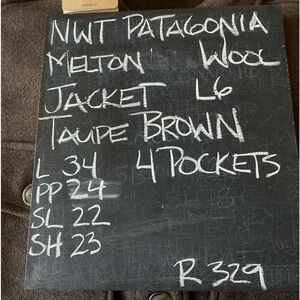 NWT PATAGONIA
MELTON WOOL
JACKET L6
TAUPE BROWN
L 34 4 POCKETS
PP 24
SL 22
SH 23
R 329